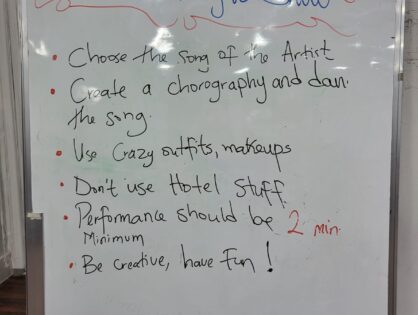 Show
• Choose the song of the Artist
• Create a chorography and dan
the song.
• Use Crazy outfits, makeups
• Don't use Hotel Stuff
• Performance should be 2 min.
Minimum
• Be Creative, have Fun !